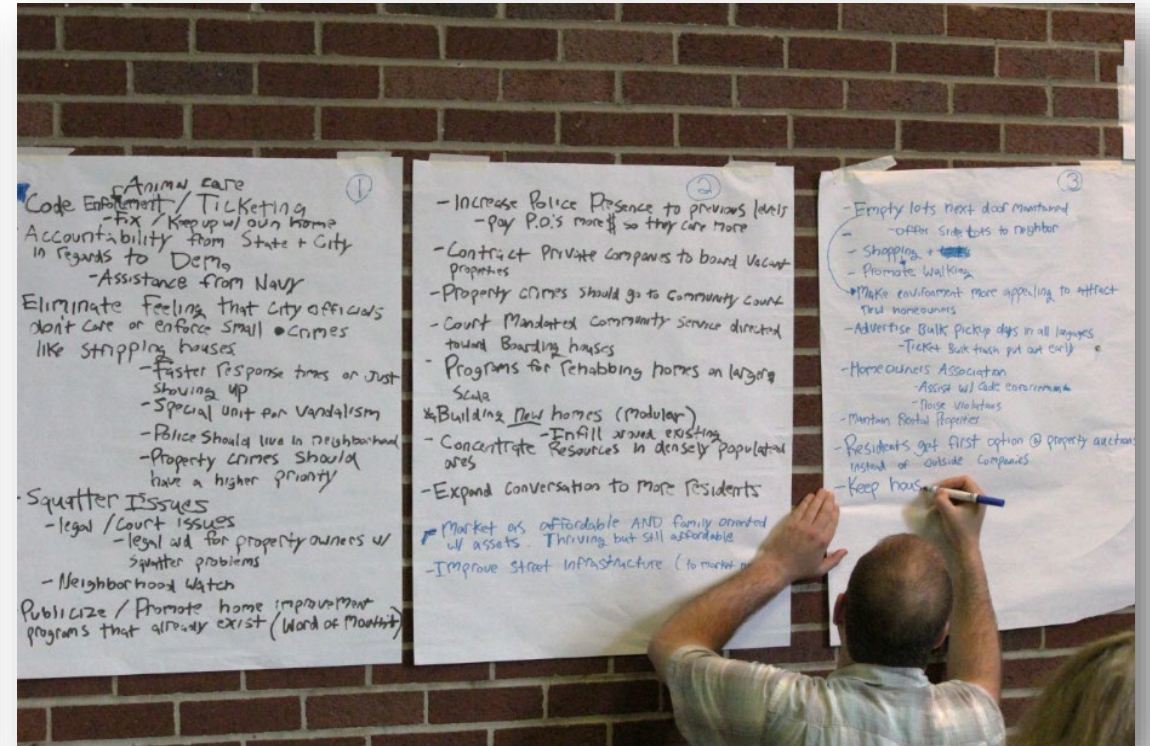 ①
Animal Care
Code Enforcement / Ticketing
- Fix / Keep up w/ own home
Accountability from State + City
in regards to Demo
- Assistance from Navy
Eliminate feeling that City officials
don't care or enforce small crimes
like stripping houses
- Faster response times or Just
showing up
- Special unit for Vandalism
- Police should live in neighborhood
- Property crimes should
have a higher priority
- Squatter Issues
- legal / Court issues
- legal aid for property owners w/
squatter problems
- Neighborhood Watch
Publicize / Promote home improvement
programs that already exist (Word of Mouth)
②
- Increase Police Presence to previous levels
- pay P.O.'s more $ so they care more
- Contract Private companies to board vacant
properties
- Property crimes should go to Community Court
- Court Mandated Community Service directed
toward Boarding houses
- Programs for rehabbing homes on larger
Scale
* Building New homes (Modular)
- Infill around existing
- Concentrate Resources in densely populated
ares
- Expand Conversation to More residents
- Market as affordable AND family oriented
w/ assets. Thriving but still affordable
- Improve Street Infrastructure (to market
③
- Empty lots next door maintained
- offer side lots to neighbor
- Shopping +
- Promote Walking
• Make environment more appealing to attract
new homeowners
- Advertise Bulk Pickup days in all languages
- Ticket Bulk trash put out early
- Homeowners Association
- Assist w/ Code enforcement
- Noise violations
- Maintain Rental Properties
- Residents get first option @ property auctions
instead of outside companies
- Keep hous